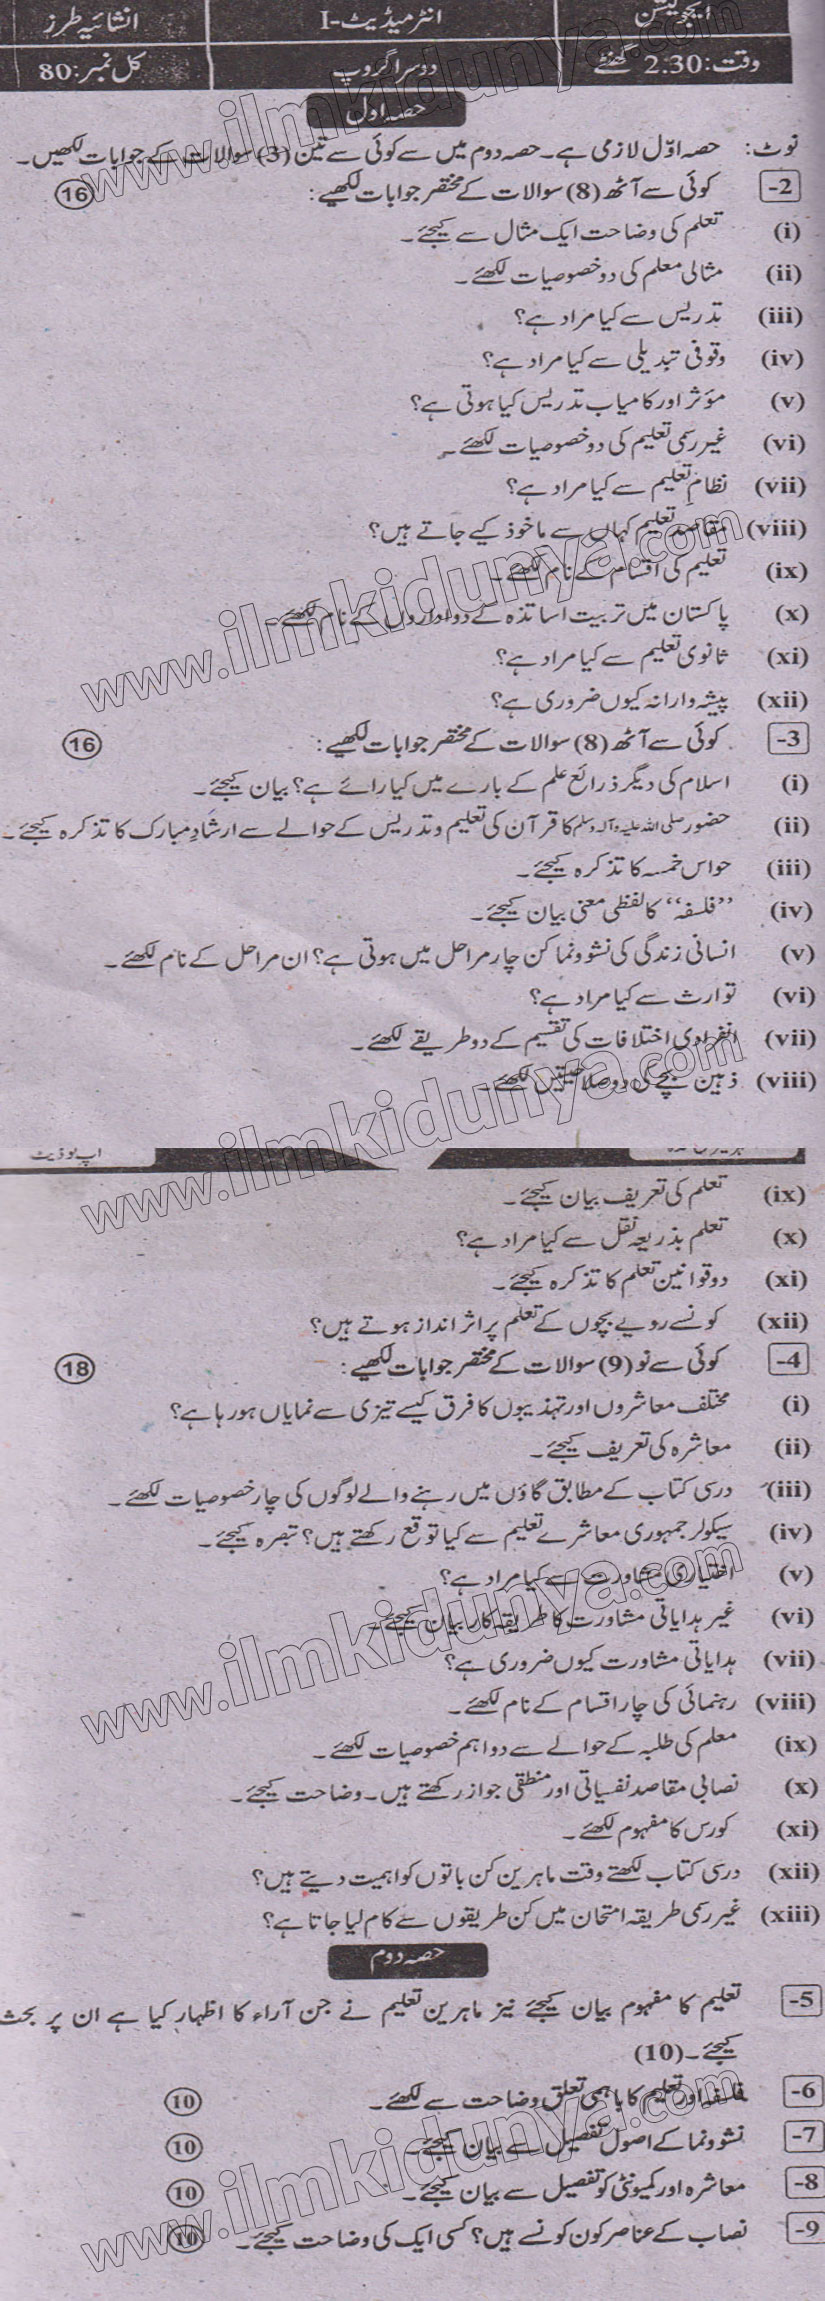 ایجوکیشن انٹرمیڈیٹ-I انشائیہ طرز
وقت: 2.30 گھنٹے دوسرا گروپ کل نمبر: 80
حصہ اول
نوٹ: حصہ اوّل لازمی ہے۔ حصہ دوم میں سے کوئی سے تین (3) سوالات کے جوابات لکھیں۔
2- کوئی سے آٹھ (8) سوالات کے مختصر جوابات لکھیے: 16
(i) تعلم کی وضاحت ایک مثال سے کیجئے۔
(ii) مثالی معلم کی دو خصوصیات لکھئے۔
(iii) تدریس سے کیا مراد ہے؟
(iv) وقوفی تبدیلی سے کیا مراد ہے؟
(v) مؤثر اور کامیاب تدریس کیا ہوتی ہے؟
(vi) غیر رسمی تعلیم کی دو خصوصیات لکھئے۔
(vii) نظامِ تعلیم سے کیا مراد ہے؟
(viii) مقاصد تعلیم کہاں سے ماخوذ کیے جاتے ہیں؟
(ix) تعلیم کی اقسام کے نام لکھئے۔
(x) پاکستان میں تربیت اساتذہ کے دو اداروں کے نام لکھئے۔
(xi) ثانوی تعلیم سے کیا مراد ہے؟
(xii) پیشہ وارانہ کیوں ضروری ہے؟
3- کوئی سے آٹھ (8) سوالات کے مختصر جوابات لکھیے: 16
(i) اسلام کی دیگر ذرائع علم کے بارے میں کیا رائے ہے؟ بیان کیجئے۔
(ii) حضور صلی اللہ علیہ وآلہ وسلم کا قرآن کی تعلیم و تدریس کے حوالے سے ارشادِ مبارک کا تذکرہ کیجئے۔
(iii) حواس خمسہ کا تذکرہ کیجئے۔
(iv) ”فلسفہ“ کا لفظی معنی بیان کیجئے۔
(v) انسانی زندگی کی نشوونما کن چار مراحل میں ہوتی ہے؟ ان مراحل کے نام لکھئے۔
(vi) توارث سے کیا مراد ہے؟
(vii) انفرادی اختلافات کی تقسیم کے دو طریقے لکھئے۔
(viii) ذہین بچے کی دو صلاحیتیں لکھئے۔
اپ ٹو ڈیٹ
(ix) تعلم کی تعریف بیان کیجئے۔
(x) تعلم بذریعہ نقل سے کیا مراد ہے؟
(xi) دو قوانین تعلم کا تذکرہ کیجئے۔
(xii) کونسے رویے بچوں کے تعلم پر اثر انداز ہوتے ہیں؟
4- کوئی سے نو (9) سوالات کے مختصر جوابات لکھیے: 18
(i) مختلف معاشروں اور تہذیبوں کا فرق کیسے تیزی سے نمایاں ہو رہا ہے؟
(ii) معاشرہ کی تعریف کیجئے۔
(iii) درسی کتاب کے مطابق گاؤں میں رہنے والے لوگوں کی چار خصوصیات لکھئے۔
(iv) سیکولر جمہوری معاشرے تعلیم سے کیا توقع رکھتے ہیں؟ تبصرہ کیجئے۔
(v) اختیاری مشاورت سے کیا مراد ہے؟
(vi) غیر ہدایاتی مشاورت کا طریقہ کار بیان کیجئے۔
(vii) ہدایاتی مشاورت کیوں ضروری ہے؟
(viii) رہنمائی کی چار اقسام کے نام لکھئے۔
(ix) معلم کی طلبہ کے حوالے سے دو اہم خصوصیات لکھئے۔
(x) نصابی مقاصد نفسیاتی اور منطقی جواز رکھتے ہیں۔ وضاحت کیجئے۔
(xi) کورس کا مفہوم لکھئے۔
(xii) درسی کتاب لکھتے وقت ماہرین کن باتوں کو اہمیت دیتے ہیں؟
(xiii) غیر رسمی طریقہ امتحان میں کن طریقوں سے کام لیا جاتا ہے؟
حصہ دوم
5- تعلیم کا مفہوم بیان کیجئے نیز ماہرین تعلیم نے جن آراء کا اظہار کیا ہے ان پر بحث
کیجئے۔ (10)
6- فلسفہ اور تعلیم کا باہمی تعلق وضاحت سے لکھئے۔ 10
7- نشوونما کے اصول تفصیل سے بیان کیجئے۔ 10
8- معاشرہ اور کمیونٹی کو تفصیل سے بیان کیجئے۔ 10
9- نصاب کے عناصر کون کونسے ہیں؟ کسی ایک کی وضاحت کیجئے۔ 10
www.ilmkidunya.com
www.ilmkidunya.com
www.ilmkidunya.com
www.ilmkidunya.com
www.ilmkidunya.com